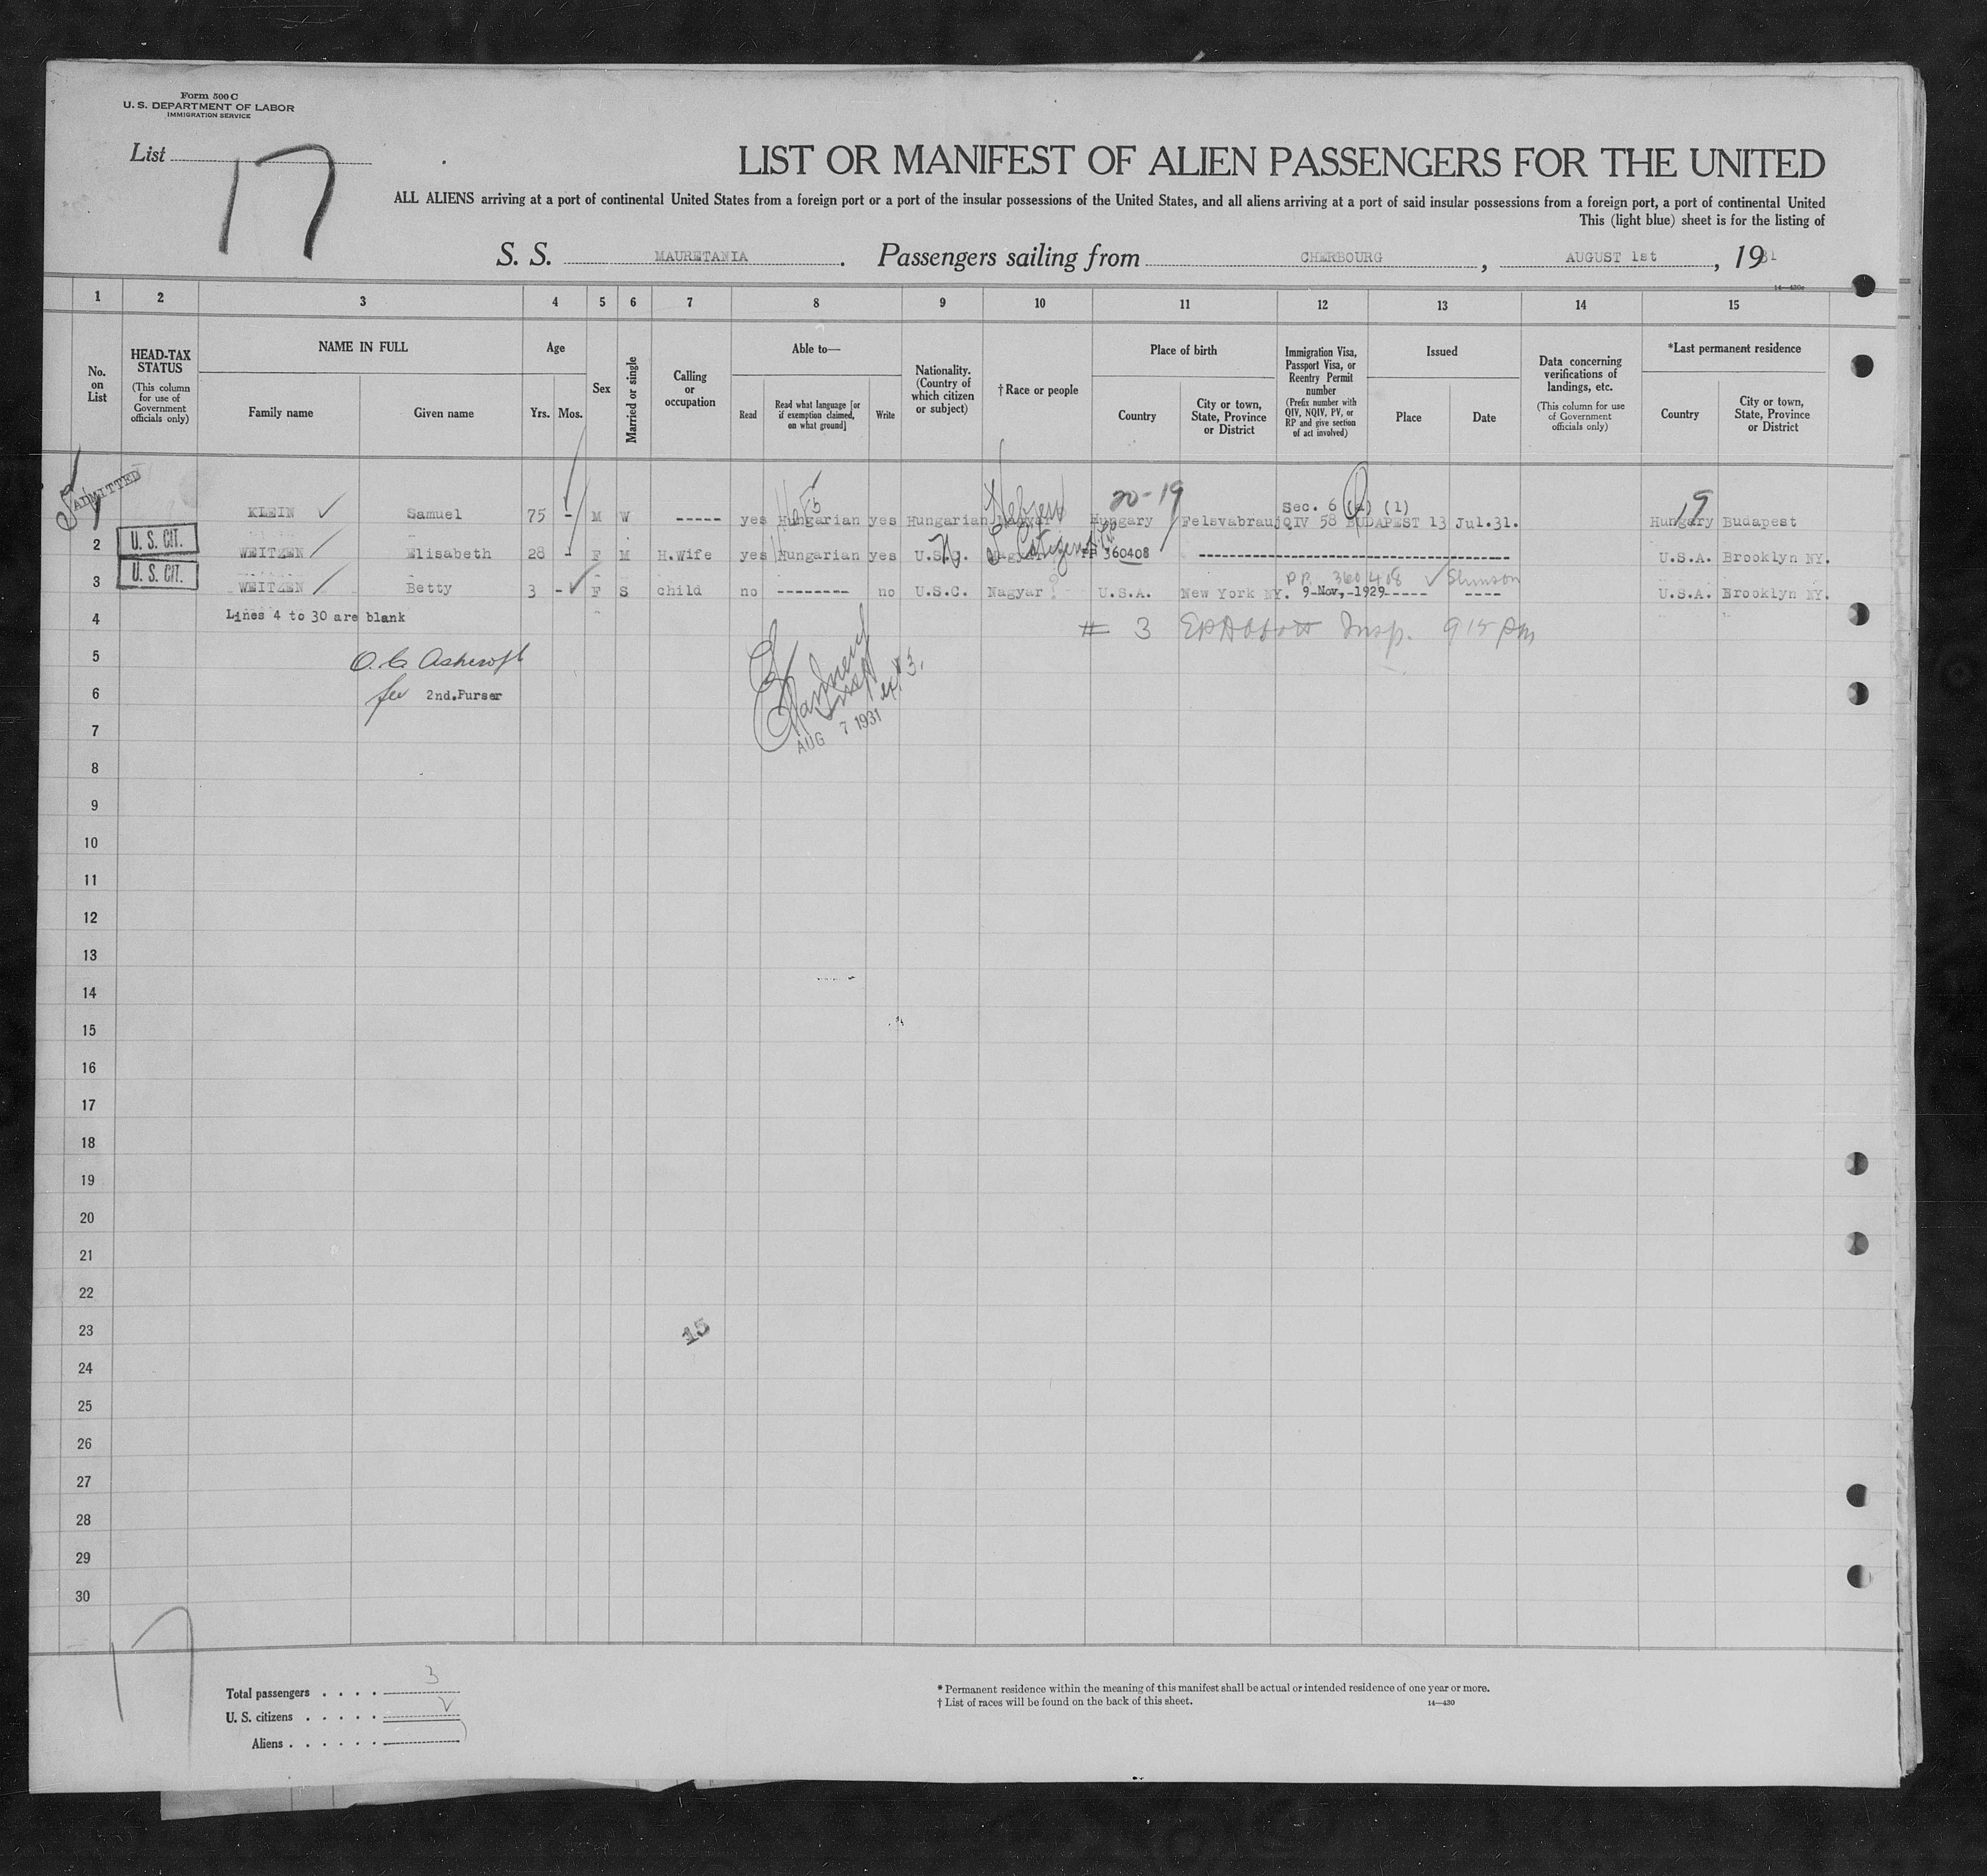 Form 500 C
U. S. DEPARTMENT OF LABOR
IMMIGRATION SERVICE
List 17
LIST OR MANIFEST OF ALIEN PASSENGERS FOR THE UNITED
ALL ALIENS arriving at a port of continental United States from a foreign port or a port of the insular possessions of the United States, and all aliens arriving at a port of said insular possessions from a foreign port, a port of continental United
This (light blue) sheet is for the listing of
S. S. MAURETANIA. Passengers sailing from CHERBOURG, AUGUST 1st, 1931
14—430c
1 2 3 4 5 6 7 8 9 10 11 12 13 14 15
No. on List
HEAD-TAX STATUS (This column for use of Government officials only)
NAME IN FULL
Family name
Given name
Age
Yrs. Mos.
Sex
Married or single
Calling or occupation
Able to—
Read
Read what language [or if exemption claimed, on what ground]
Write
Nationality. (Country of which citizen or subject)
†Race or people
Place of birth
Country
City or town, State, Province or District
Immigration Visa, Passport Visa, or Reentry Permit number (Prefix number with QIV, NQIV, PV, or RP and give section of act involved)
Issued
Place
Date
Data concerning verifications of landings, etc. (This column for use of Government officials only)
*Last permanent residence
Country
City or town, State, Province or District
ADMITTED
Hebrew 20-19 Sec. 6 (a) (1) 19
1 KLEIN Samuel 75 - M W ----- yes Hungarian yes Hungarian Magyar Hungary Felsvabrau QIV 58 BUDAPEST 13 Jul.31. Hungary Budapest
2 U. S. CIT. WEITZEN Elisabeth 28 - F M H.Wife yes Hungarian yes U.S.C. Magyar Citizen PP 360408 ---------- U.S.A. Brooklyn NY.
PP 360408 Stimson
3 U. S. CIT. WEITZEN Betty 3 - F S child no -------- no U.S.C. Magyar U.S.A. New York NY. 9-Nov,-1929----- ---- U.S.A. Brooklyn NY.
4 Lines 4 to 30 are blank
# 3 EPAbbott Insp. 915 PM
5 O. C. Ashcroft
6 for 2nd.Purser
Insp
ex #3.
AUG 7 1931
7
8
9
10
11
12
13
14
15
16
17
18
19
20
21
22
23
15
24
25
26
27
28
29
30
17
Total passengers . . . . 3
U. S. citizens . . . . . 2
Aliens . . . . . . 1
* Permanent residence within the meaning of this manifest shall be actual or intended residence of one year or more.
† List of races will be found on the back of this sheet.
14—430